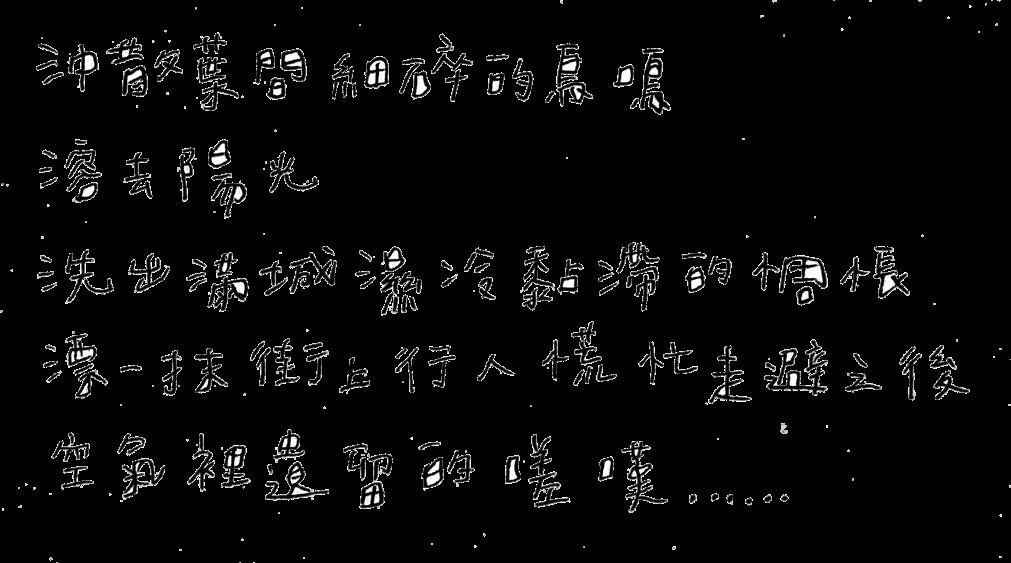 沖散葉間細碎的鳥鳴
溶去陽光
洗出滿城濕冷黏滯的惆悵
漂一抹街上行人慌忙走避之後
空氣裡遺留的嗟嘆……